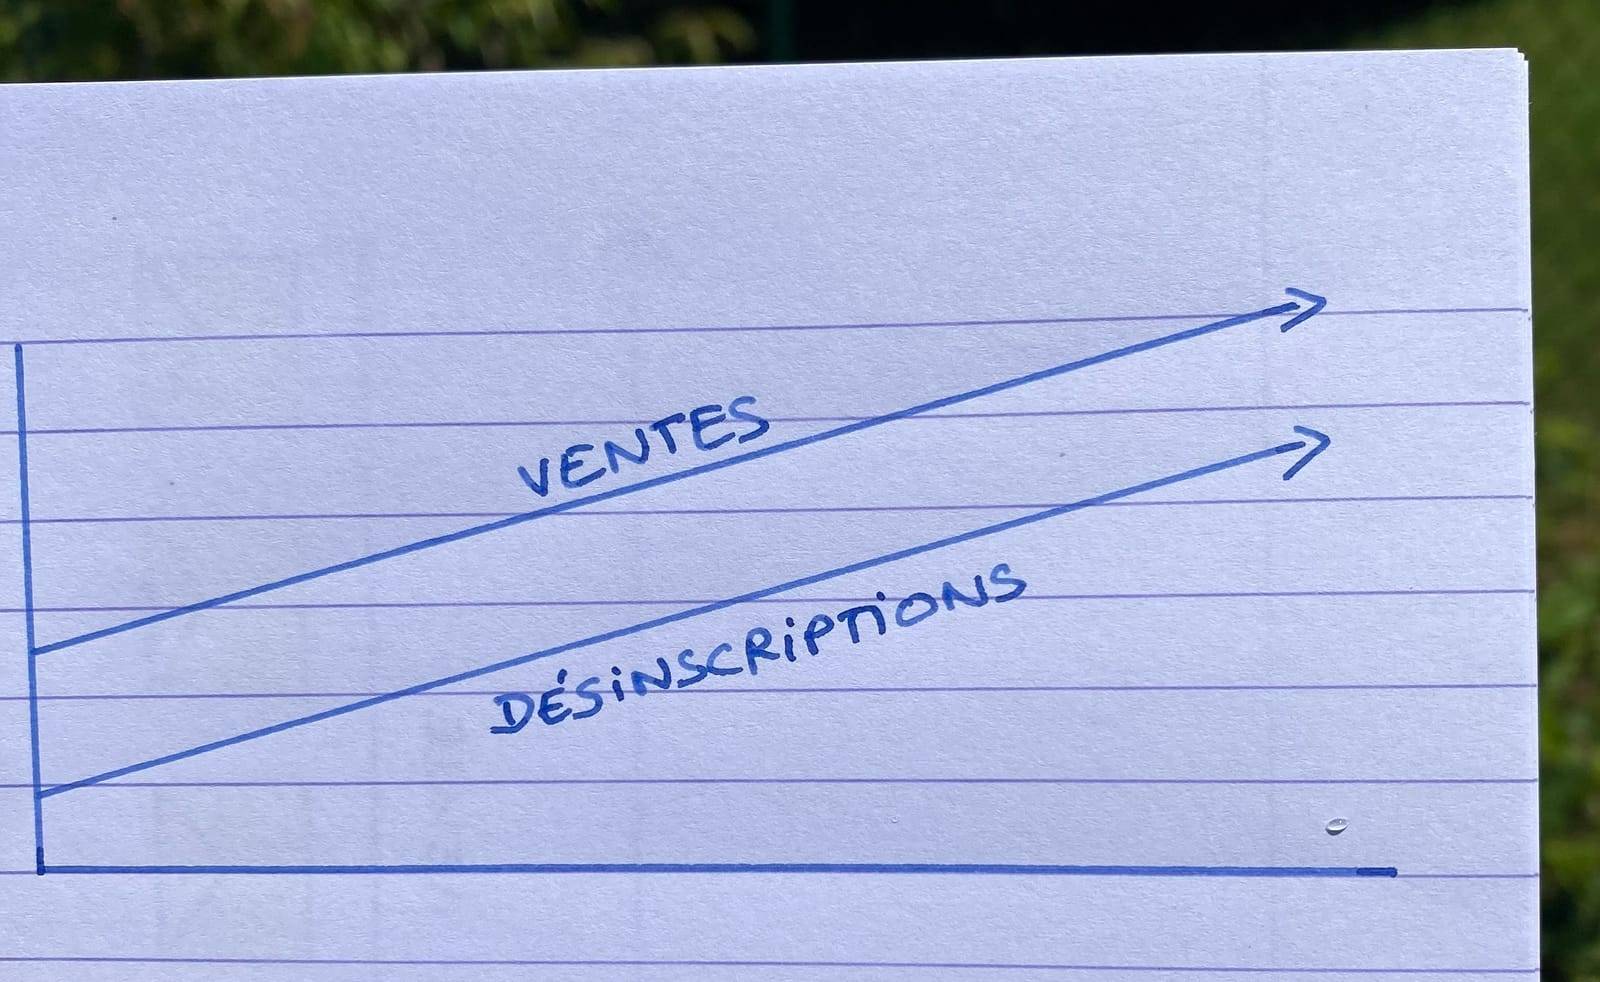 VENTES
DÉSiNSCRiPTiONS